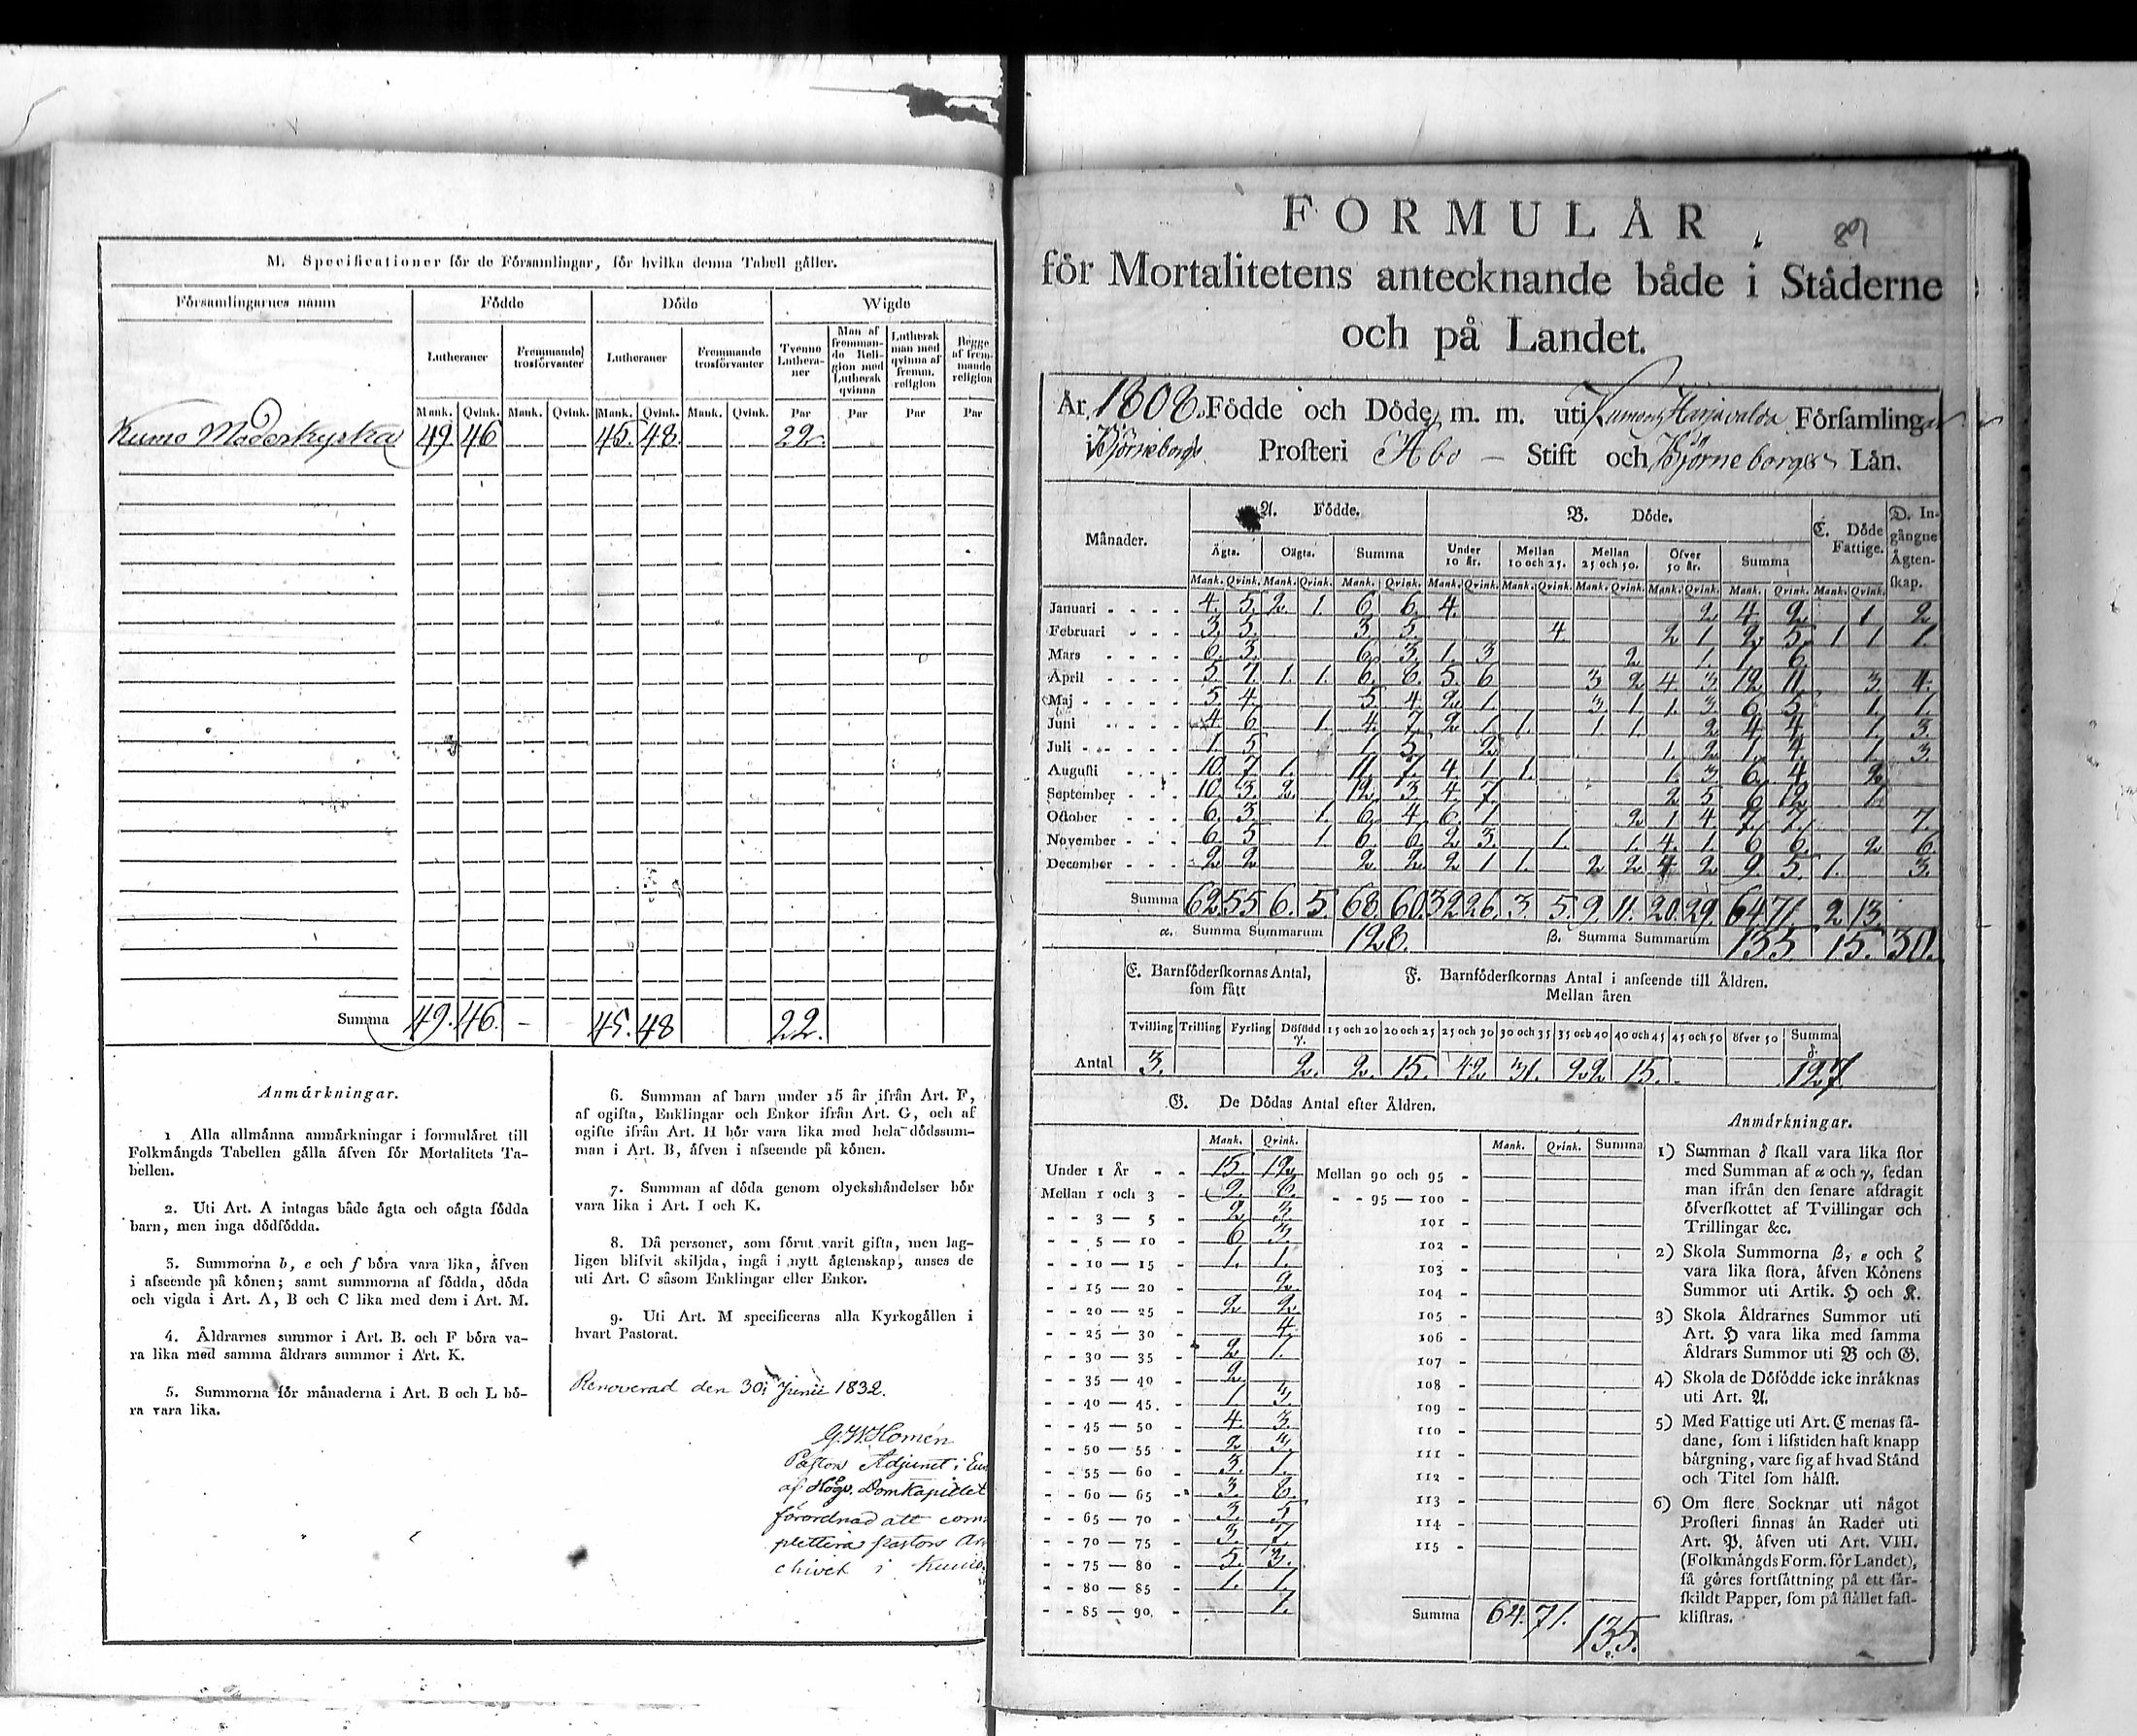 M. Specificationer för de Församlingar, för hvilka denna Tabell gäller.
Församlingarnes namn Födde Döde Wigde
Lutheraner Fremmande trosförvanter Lutheraner Fremmande trosförvanter Tvenne Lutheraner Man af fremmande Religion med Luthersk qvinna Luthersk man med qvinna af fremm. religion Begge af fremmande religion
Mank. Qvink. Mank. Qvink. Mank. Qvink. Mank. Qvink. Par Par Par Par
Kumo Moderkyrka 49. 46 45. 48 22.
Summa 49. 46. - - 45. 48 22.
Anmärkningar.
1 Alla allmänna anmärkningar i formuläret till
Folkmängds Tabellen gälla äfven för Mortalitets Ta-
bellen.
2. Uti Art. A intagas både ägta och oägta födda
barn, men inga dödfödda.
3. Summorna b, e och f böra vara lika, äfven
i afseende på könen; samt summorna af födda, döda
och vigda i Art. A, B och C lika med dem i Art. M.
4. Åldrarnes summor i Art. B. och F böra va-
ra lika med samma åldrars summor i Art. K.
5. Summorna för månaderna i Art. B och L bö-
ra vara lika.
6. Summan af barn under 15 år ifrån Art. F,
af ogifta, Enklingar och Enkor ifrån Art. G, och af
ogifte ifrån Art. H bör vara lika med hela dödssum-
man i Art. B, äfven i afseende på könen.
7. Summan af döda genom olyckshändelser bör
vara lika i Art. I och K.
8. Då personer, som förut varit gifta, men lag-
ligen blifvit skiljda, ingå i nytt ägtenskap, anses de
uti Art. C såsom Enklingar eller Enkor.
9. Uti Art. M specificeras alla Kyrkogällen i
hvart Pastorat.
Renoverad den 30: Junii 1832.
G. W. Homén
Pastors Adjunct i Eu
af Högv. Domkapitlet
förordnad att com-
plettera pastors Ar
chivet i Kumo
FORMULÄR
89
för Mortalitetens antecknande både i Städerne
och på Landet.
År 1808. Födde och Döde m. m. uti Kumo och Harjavalda Församlingar
i Björneborgs Prosteri Åbo - Stift och Björneborgs Län.
Månader. A. Födde. B. Döde. C. Döde Fattige. D. Ingångne Ägtenskap.
Ägta. Oägta. Summa Under 10 år. Mellan 10 och 25. Mellan 25 och 50. Öfver 50 år. Summa
Mank. Qvink. Mank. Qvink. Mank. Qvink. Mank. Qvink. Mank. Qvink. Mank. Qvink. Mank. Qvink. Mank. Qvink. Mank. Qvink.
Januari 4. 5. 2. 1. 6. 6. 4. 2 4 2 1 2
Februari 3. 5. 3. 5. 4. 2 1 2 5 1 1 1.
Mars 6. 3. 6. 3. 1. 3 2 1. 1 6
April 5. 7. 1. 1. 6. 8. 5. 6 3 2 4. 3. 12 11 3 4.
Maj 5. 4. 5 4. 2. 1. 3. 1 1. 3 6 5. 1. 1.
Juni 4. 6 1. 4. 7. 2 1 1. 1 1. 2 4 4 1. 3.
Juli 1. 5 1. 5. 2 1. 2 1. 4. 1. 3.
Augusti 10. 7. 1. 11. 7. 4. 1 1. 1. 3 6 4. 2
September 10. 3. 2. 12. 3 4. 7. 2 5 6 12 1.
October 6. 3. 1. 6. 4 6. 1 2 1 4 7. 7. 7.
November 6. 5 1. 6. 6. 2 3. 1. 1. 4. 1. 6 6. 2 6.
December 2 2 2. 2. 2 1 1. 2 2 4 2 9. 5. 1. 3.
Summa 62 55 6. 5. 68 60. 32 26. 3. 5. 9. 11. 20. 29. 64 71. 2 13.
α. Summa Summarum 128. β. Summa Summarum 135. 15. 30.
E. Barnföderskornas Antal, som fått
F. Barnföderskornas Antal i anseende till Åldren.
Mellan åren
Tvilling Trilling Fyrling Döfödd γ. 15 och 20 20 och 25 25 och 30 30 och 35 35 och 40 40 och 45 45 och 50 öfver 50 Summa δ.
Antal 3. 2. 2. 15. 42. 31. 22 15. - 127.
G. De Dödas Antal efter Åldren.
Mank. Qvink. Mank. Qvink. Summa
Under 1 År 15. 12
Mellan 1 och 3 9. 8.
3 — 5 2 3.
5 — 10 6 3
10 — 15 1. 1.
15 — 20 2.
20 — 25 2 2.
25 — 30 4.
30 — 35 2 1.
35 — 40 2
40 — 45 1. 3.
45 — 50 4. 3.
50 — 55 2 3.
55 — 60 3. 1.
60 — 65 3. 8.
65 — 70 3. 5
70 — 75 3. 7.
75 — 80 5. 3.
80 — 85 1. 1.
85 — 90. 1.
Mellan 90 och 95
95 — 100
101
102
103
104
105
106
107
108
109
110
111
112
113
114
115
Summa 64. 71. 135.
Anmärkningar.
1) Summan δ skall vara lika stor
med Summan af α och γ, sedan
man ifrån den senare afdragit
öfverskottet af Tvillingar och
Trillingar &c.
2) Skola Summorna β, ε och ζ
vara lika stora, äfven Könens
Summor uti Artik. H och K.
3) Skola Åldrarnes Summor uti
Art. H vara lika med samma
Åldrars Summor uti B och G.
4) Skola de Döfödde icke inräknas
uti Art. A.
5) Med Fattige uti Art. C menas så-
dane, som i lifstiden haft knapp
bärgning, vare sig af hvad Stånd
och Titel som hälst.
6) Om flere Socknar uti något
Prosteri finnas än Rader uti
Art. P. äfven uti Art. VIII.
(Folkmängds Form. för Landet),
så göres fortsättning på ett sär-
skildt Papper, som på stället fast-
klistras.